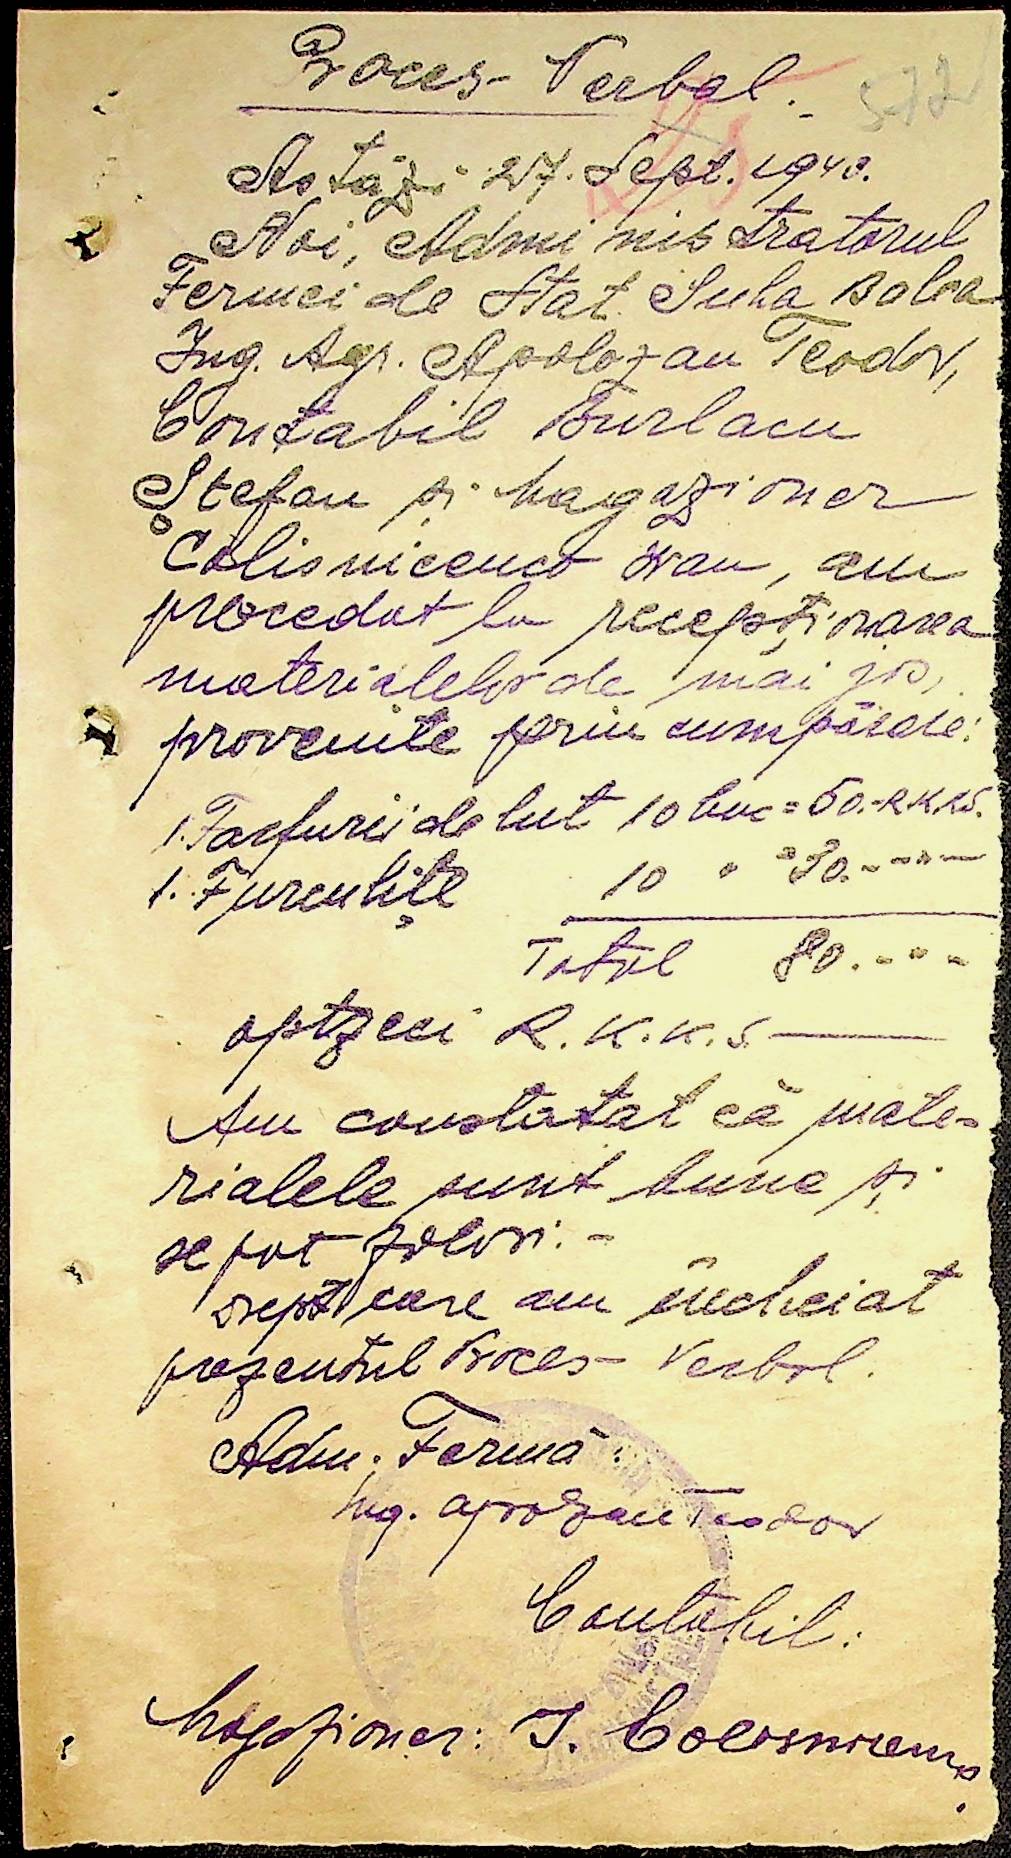 Proces-Verbal.
572
Astăzi 27. Sept. 1943.
Noi, Administratorul
Fermei de Stat. Suha Balca
Ing. Agr. Apolozan Teodor,
Contabil Burlacu
Ștefan și magazioner
Colisnicenco Ivan, am
procedat la recepționarea
materialelor de mai jos,
provenite prin cumpărare:
1. Farfurii de lut 10 buc = 50.- RKKS.
1. Furculițe 10 " = 30.- -"-
Total 80.- -"-
optzeci R.K.K.S.
Am constatat că mate-
rialele sunt bune și
se pot folosi.-
drept care am încheiat
prezentul Proces-Verbal.
Adm. Fermă:
Ing. Apolozan Teodor
Contabil:
Magazioner: I.